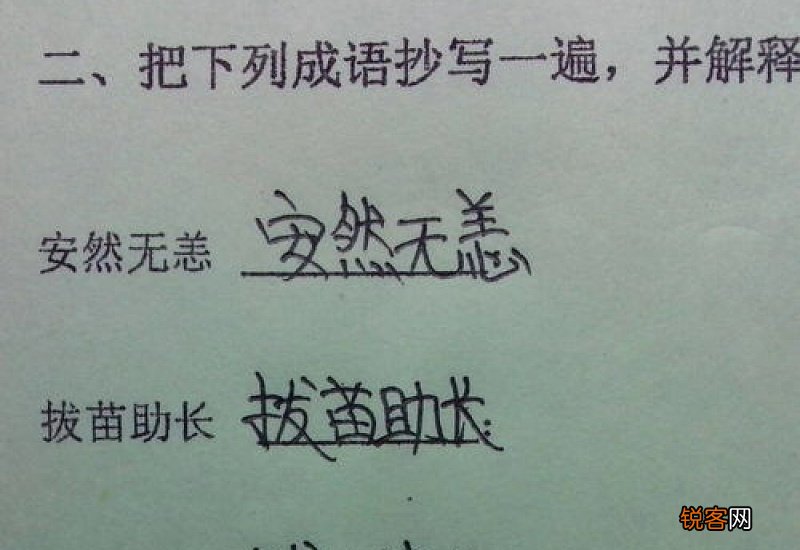 二、把下列成语抄写一遍，并解释
安然无恙 安然无恙
拔苗助长 拔苗助长
锐客网